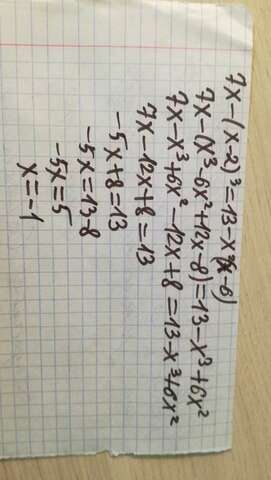 7x-(x-2)³=13-x²(x-6)
7x-(x³-6x²+12x-8)=13-x³+6x²
7x-x³+6x²-12x+8=13-x³+6x²
7x-12x+8=13
-5x+8=13
-5x=13-8
-5x=5
x=-1